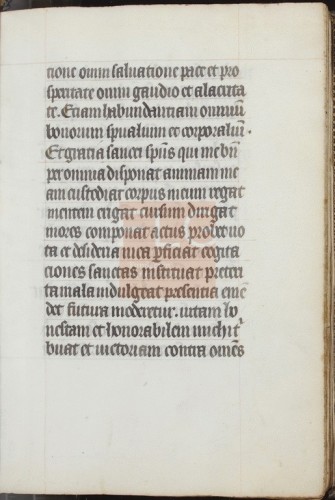 tione omni saluatione pace et pro
speritate omni gaudio et alacrita
te. Etiam habundantiam omniū
bonorum spūalium et corporaliū.
Et gratia sancti spūs qui me bn̄
per omnia disponat animam me
am custodiat corpus meum regat
mentem erigat cursum dirigat
mores componat actus probet uo
ta et desideria mea ꝑficiat cogita
ciones sanctas instituat preteri
ta mala indulgeat presentia emē
det futura moderetur. uitam ho
nestam et honorabilem michi t͛
buat et uictoriam contra omēs